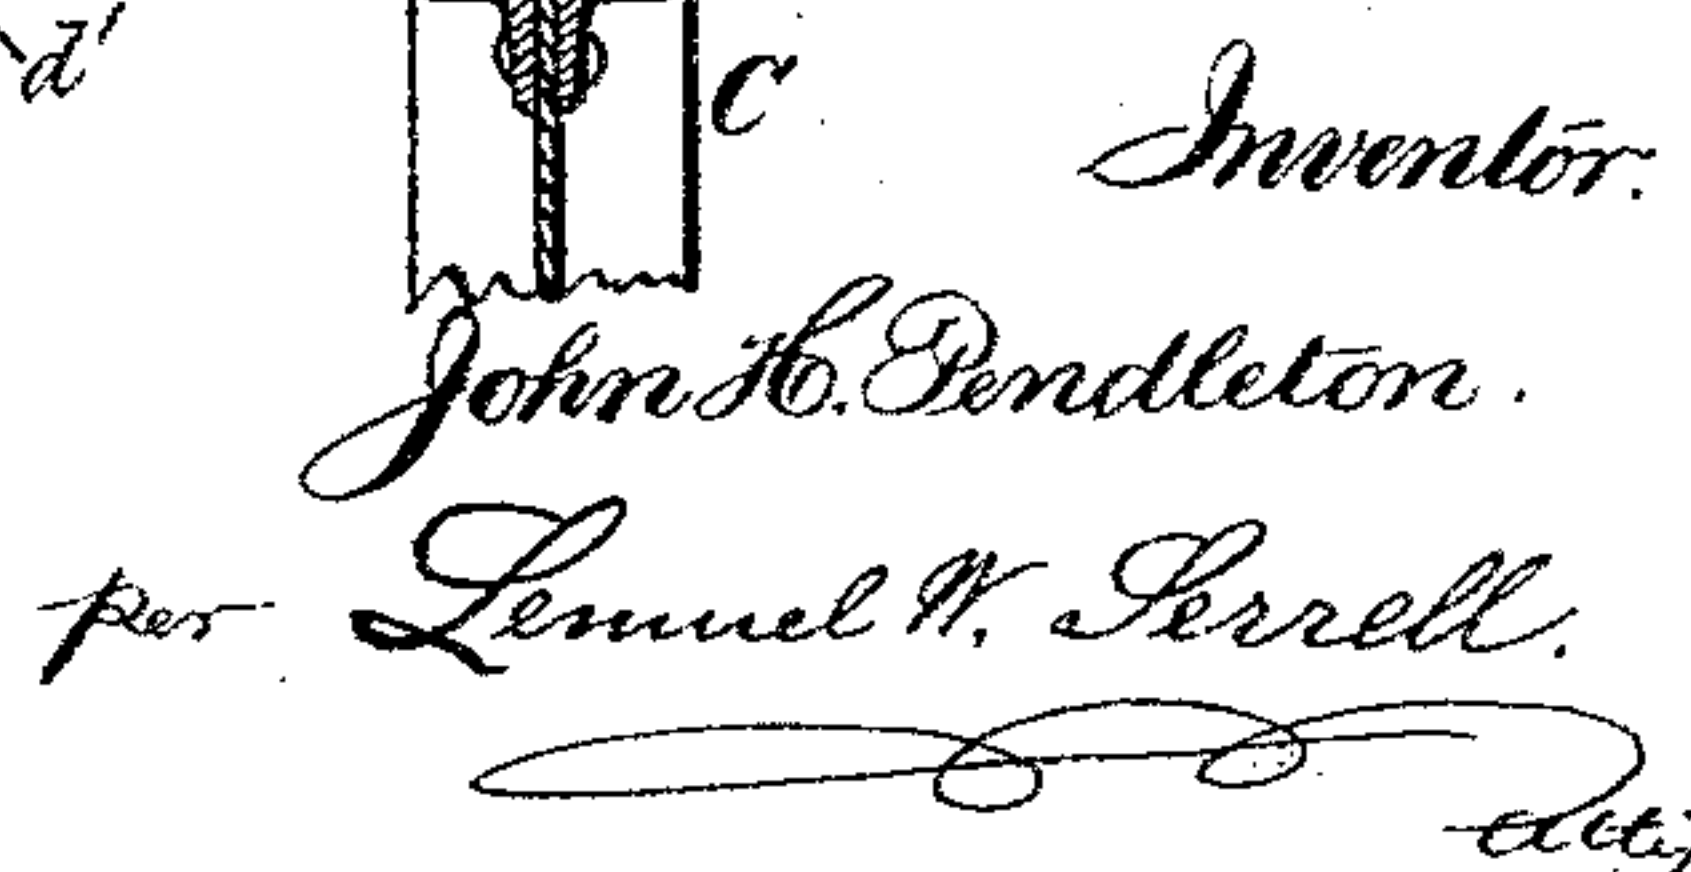 d'
C
Inventor.
John H. Pendleton.
per Lemuel W. Serrell.
atty